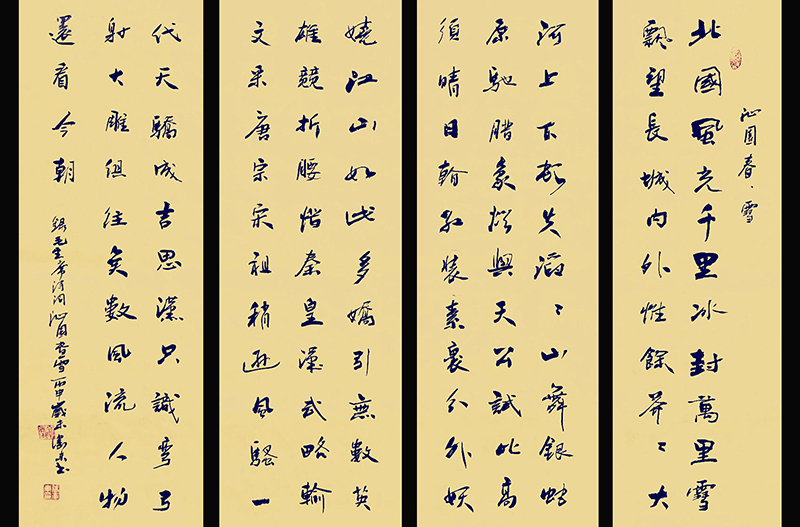 沁園春·雪
北國風光千里冰封萬里雪
飄望長城內外惟餘莽〻大
河上下頓失滔〻山舞銀蛇
原馳腊象欲與天公試比高
須晴日看紅裝素裹分外妖
嬈江山如此多嬌引無數英
雄競折腰惜秦皇漢武略輸
文采唐宗宋祖稍遜風騷一
代天驕成吉思漢只識彎弓
射大雕俱往矣數風流人物
還看今朝
錄毛主席詩詞沁園春雪丙申歲末書